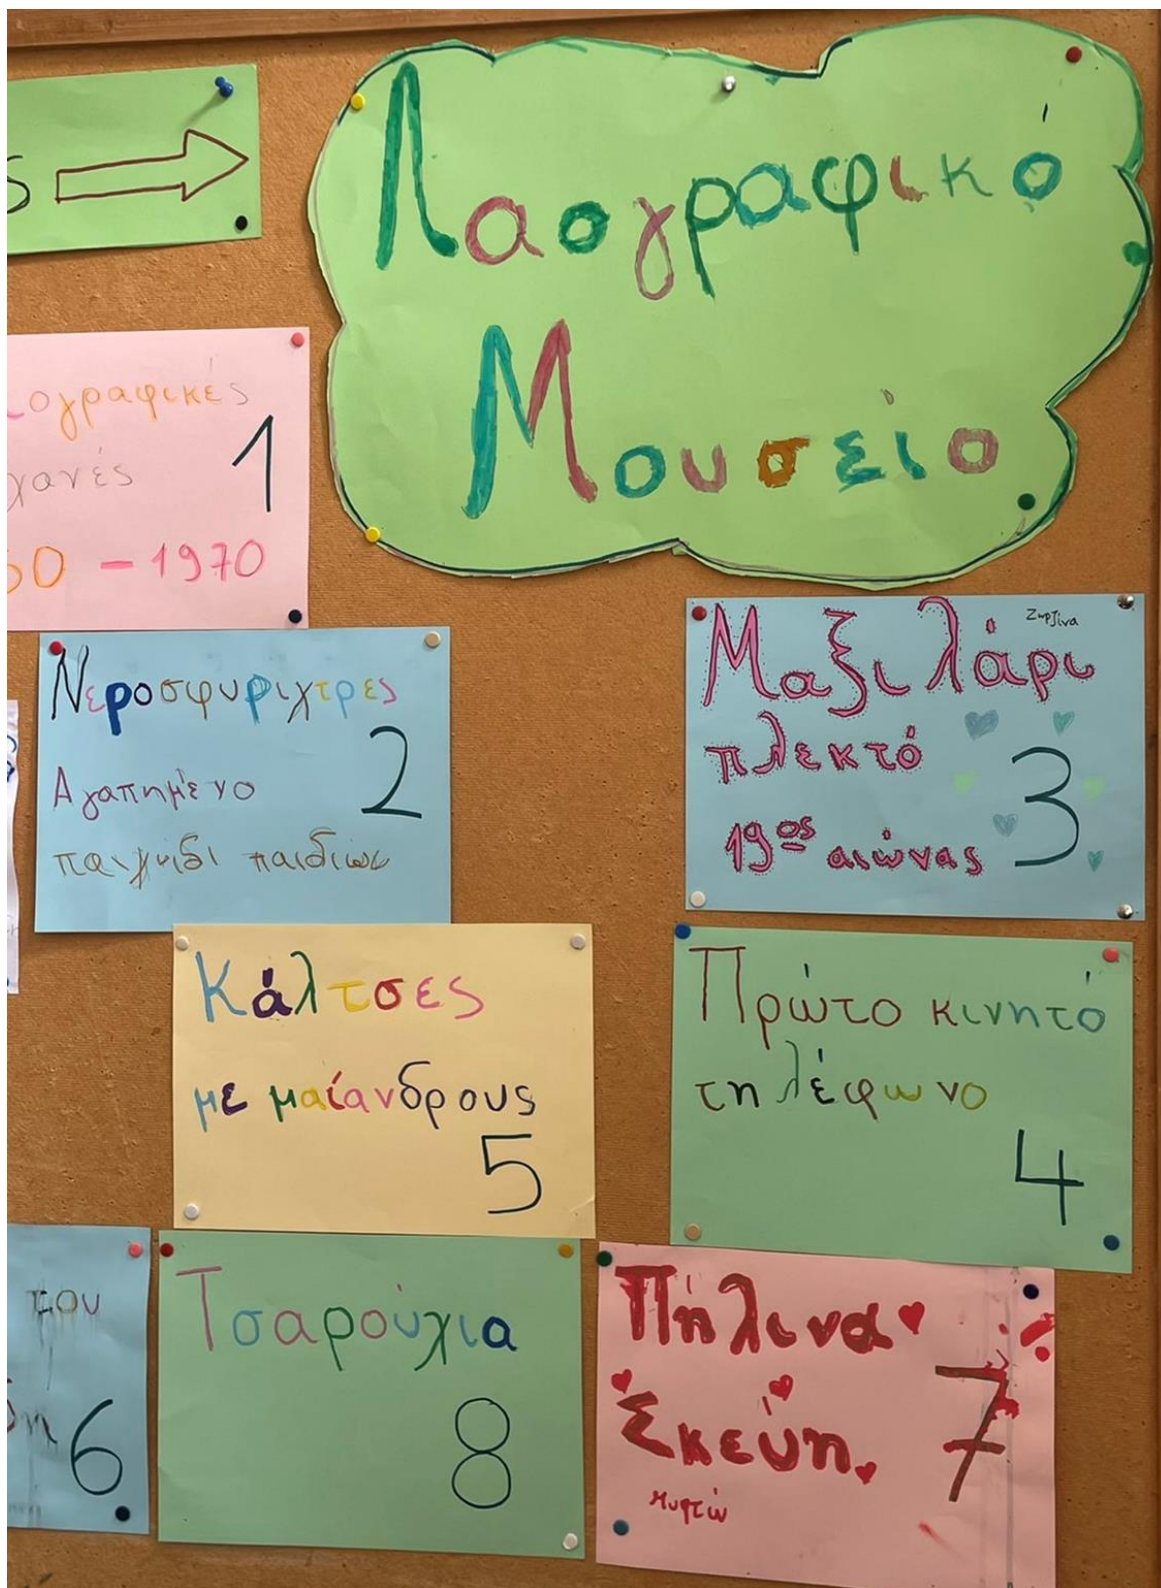 Λαογραφικό
Μουσείο
ς
ογραφικές
χανές
1
50 - 1970
Νεροσφυριχτρες
2
Αγαπημένο
παιχνίδι παιδιών
Ζωρζίνα
Μαξιλάρι
πλεκτό
3
19ος αιώνας
Κάλτσες
με μαίανδρους
5
Πρώτο κινητό
τηλέφωνο
4
του
6
Τσαρούχια
8
Πήλινα
Σκεύη
7
Μυρτώ